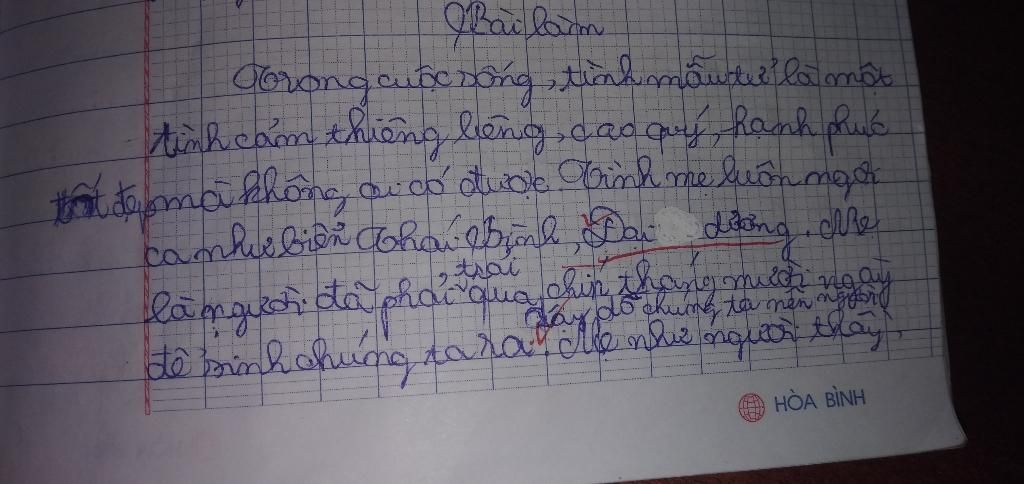 Bài làm
Trong cuộc sống, tình mẫu tử là một
tình cảm thiêng liêng, cao quý, hạnh phúc
tốt đẹp mà không ai có được. Tình mẹ luôn ngợi
ca như biển Thái Bình, Đại dương. Mẹ
là người đã phải, trải qua chín tháng mười ngày
dạy dỗ chúng ta nên người
để sinh chúng ta ra. Mẹ như người thầy,
HÒA BÌNH